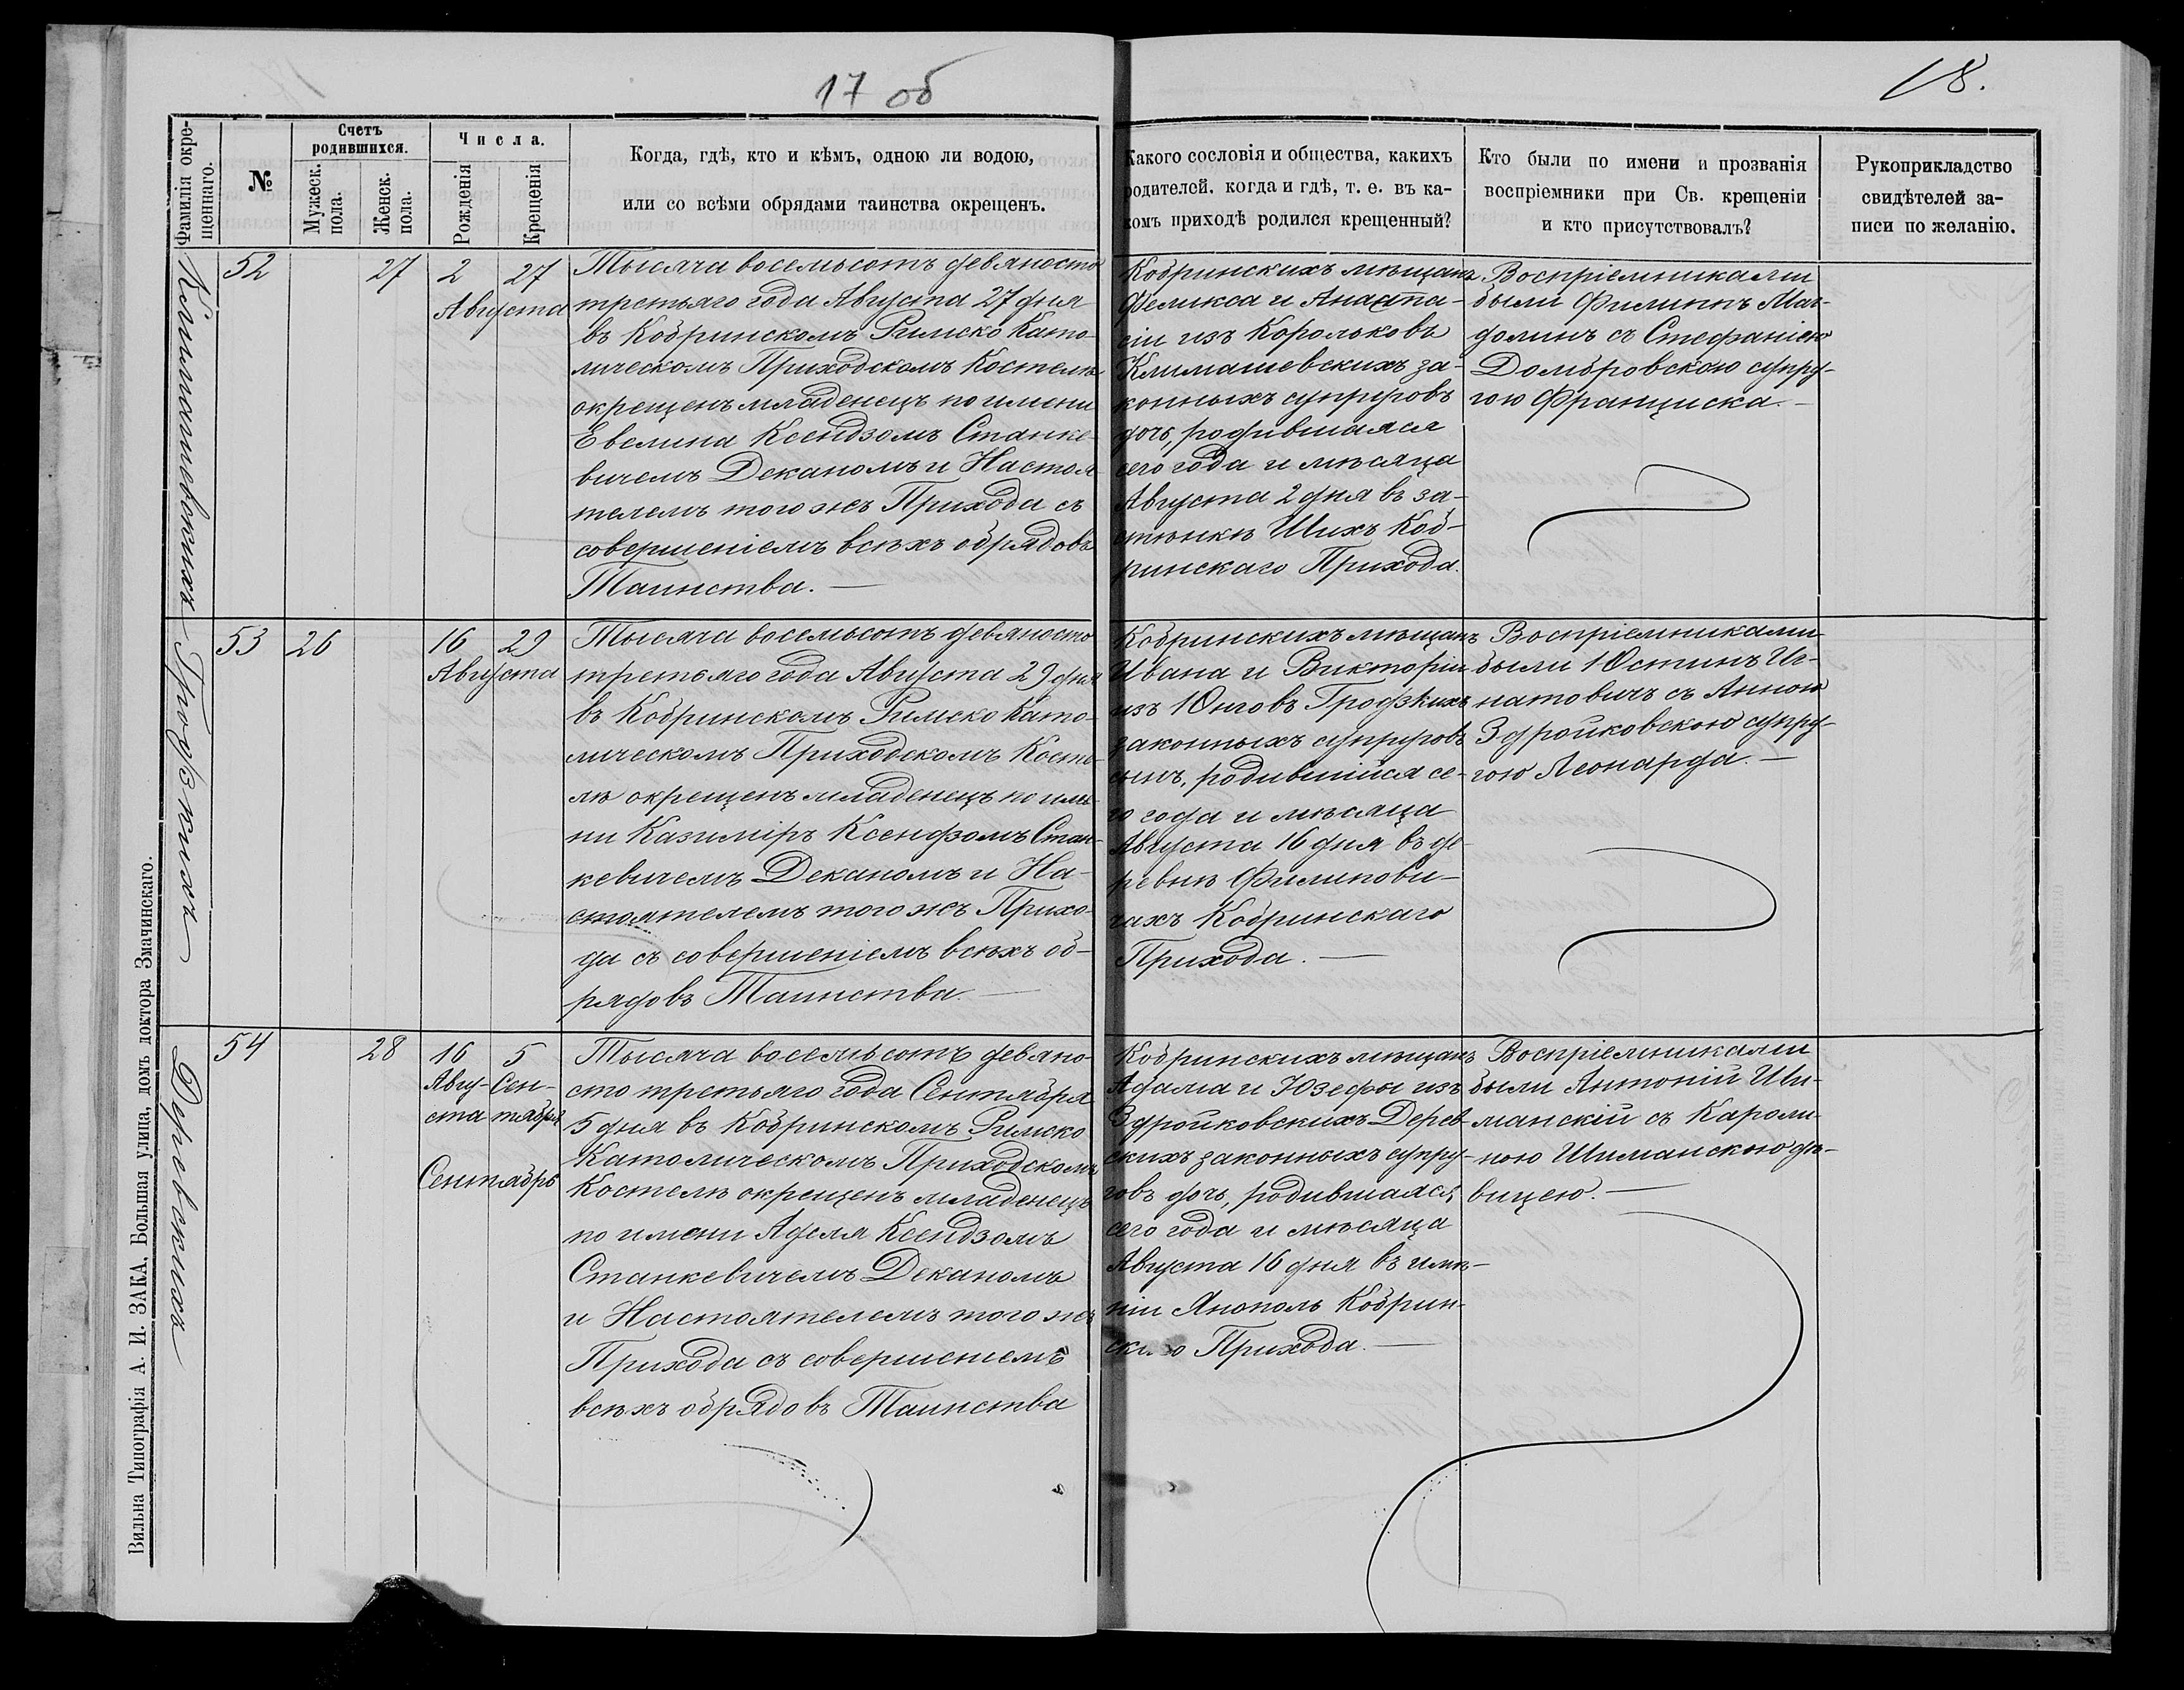 17 об
18.
Фамилія окре-
щеннаго.
№
Счетъ
родившихся.
Мужеск.
пола.
Женск.
пола.
Числа.
Рожденія
Крещенія
Когда, гдѣ, кто и кѣмъ, одною ли водою,
или со всѣми обрядами таинства окрещенъ.
Какого сословія и общества, какихъ
родителей. когда и гдѣ, т. е. въ ка-
комъ приходѣ родился крещенный?
Кто были по имени и прозванія
воспріемники при Св. крещеніи
и кто присутствовалъ?
Рукоприкладство
свидѣтелей за-
писи по желанію.
Климашевскихъ
52
27
2
27
Августа
Тысяча восемьсотъ девяносто
третьяго года Августа 27 дня
въ Кобринскомъ Римско Като-
лическомъ Приходскомъ Костелѣ
окрещенъ младенецъ по имени
Евелина Ксендзомъ Станке-
вичемъ Деканомъ и Настоя-
телемъ того жъ Прихода съ
совершеніемъ всѣхъ обрядовъ
Таинства.
Кобринскихъ мѣщанъ
Феликса и Анаста-
сіи изъ Корольковъ
Климашевскихъ за-
конныхъ супруговъ
дочь, родившаяся
сего года и мѣсяца
Августа 2 дня въ за-
стѣнкѣ Шихъ Коб-
ринскаго Прихода.
Воспріемниками
были Филиппъ Маг-
долинъ съ Стефаніею
Домбровскою супру-
гою Франциска.
Гродзкихъ
53
26
16
29
Августа
Тысяча восемьсотъ девяносто
третьяго года Августа 29 дня
въ Кобринскомъ Римско Като-
лическомъ Приходскомъ Косте-
лѣ окрещенъ младенецъ по име-
ни Казиміръ Ксендзомъ Стан-
кевичемъ Деканомъ и На-
стоятелемъ того жъ Прихо-
да съ совершеніемъ всѣхъ об-
рядовъ Таинства.
Кобринскихъ мѣщанъ
Ивана и Викторіи
изъ Юнговъ Гродзкихъ
законныхъ супруговъ
сынъ, родившійся се-
го года и мѣсяца
Августа 16 дня въ де-
ревнѣ Филипови-
чахъ Кобринскаго
Прихода.
Воспріемниками
были Юстинъ Иг-
натовичъ съ Анною
Здройковскою супру-
гою Леонарда.
Деревскихъ
54
28
16
5
Авгу-
ста
Сен-
тября
Сентябрь
Тысяча восемьсотъ девяно-
сто третьяго года Сентября
5 дня въ Кобринскомъ Римско
Католическомъ Приходскомъ
Костелѣ окрещенъ младенецъ
по имени Аделя Ксендзомъ
Станкевичемъ Деканомъ
и Настоятелемъ того жъ
Прихода съ совершеніемъ
всѣхъ обрядовъ Таинства
Кобринскихъ мѣщанъ
Адама и Юзефы изъ
Здройковскихъ Дерев-
скихъ законныхъ супру-
говъ дочь, родившаяся
сего года и мѣсяца
Августа 16 дня въ имѣ-
ніи Янополь Кобрин-
скаго Прихода.
Воспріемниками
были Антоній Ши-
манскій съ Кароли-
ною Шиманскою дѣ-
вицею.
Вильна Типографія А. И. ЗАКА, Большая улица, домъ доктора Змачинскаго.